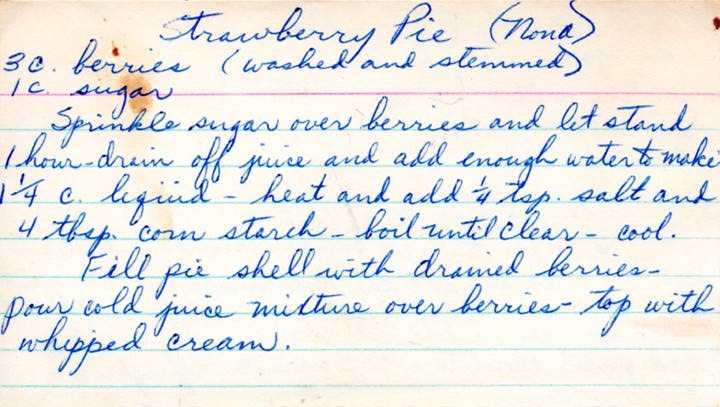 Strawberry Pie (Nona)
3 c. berries (washed and stemmed)
1 c. sugar
Sprinkle sugar over berries and let stand
1 hour - drain off juice and add enough water to make
1 1/4 c. liquid - heat and add 1/4 tsp. salt and
4 tbsp. corn starch - boil until clear - cool.
Fill pie shell with drained berries -
pour cold juice mixture over berries - top with
whipped cream.